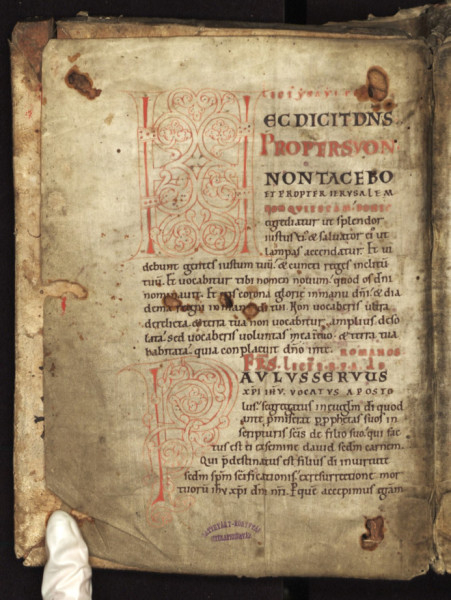 HEC DICIT DNS
PROPTER SYON
NON TACEBO
ET PROPTER IERUSALEM
NON QUIESCAM DONEC
egrediatur ut splendor
iustus ei⁹ & saluator ei⁹ ut
lampas accendatur. Et ui
debunt gentes iustum tuū. & cuncti reges inclitū
tuū. Et uocabitur tibi nomen nouum. quod os dn̄i
nominauit. Et eris corona glorie in manu dn̄i. & dia
dema regni in manu di tui. Non uocaberis ultra
derelicta. & terra tua non uocabitur amplius deso
lata. sed uocaberis uoluntas mea in ea. & terra tua
habitata. quia complacuit dn̄o in te. ROMANOS
AD
PAULUS SERUUS
XPI IHV. VOCATUS APOSTO
lus. segregatus in euuglm di quod
ante p̄miserat p̄ pphetas suos in
scripturis scīs de filio suo. qui fac
tus est ei ex semine dauid sedm carnem.
Qui p̄destinatus est filius di in uirtute
sedm sp̄m scificationis ex resurrectione mor
tuorū ihu xpi dn̄i nr̄i. P quē accepimus gr̄am